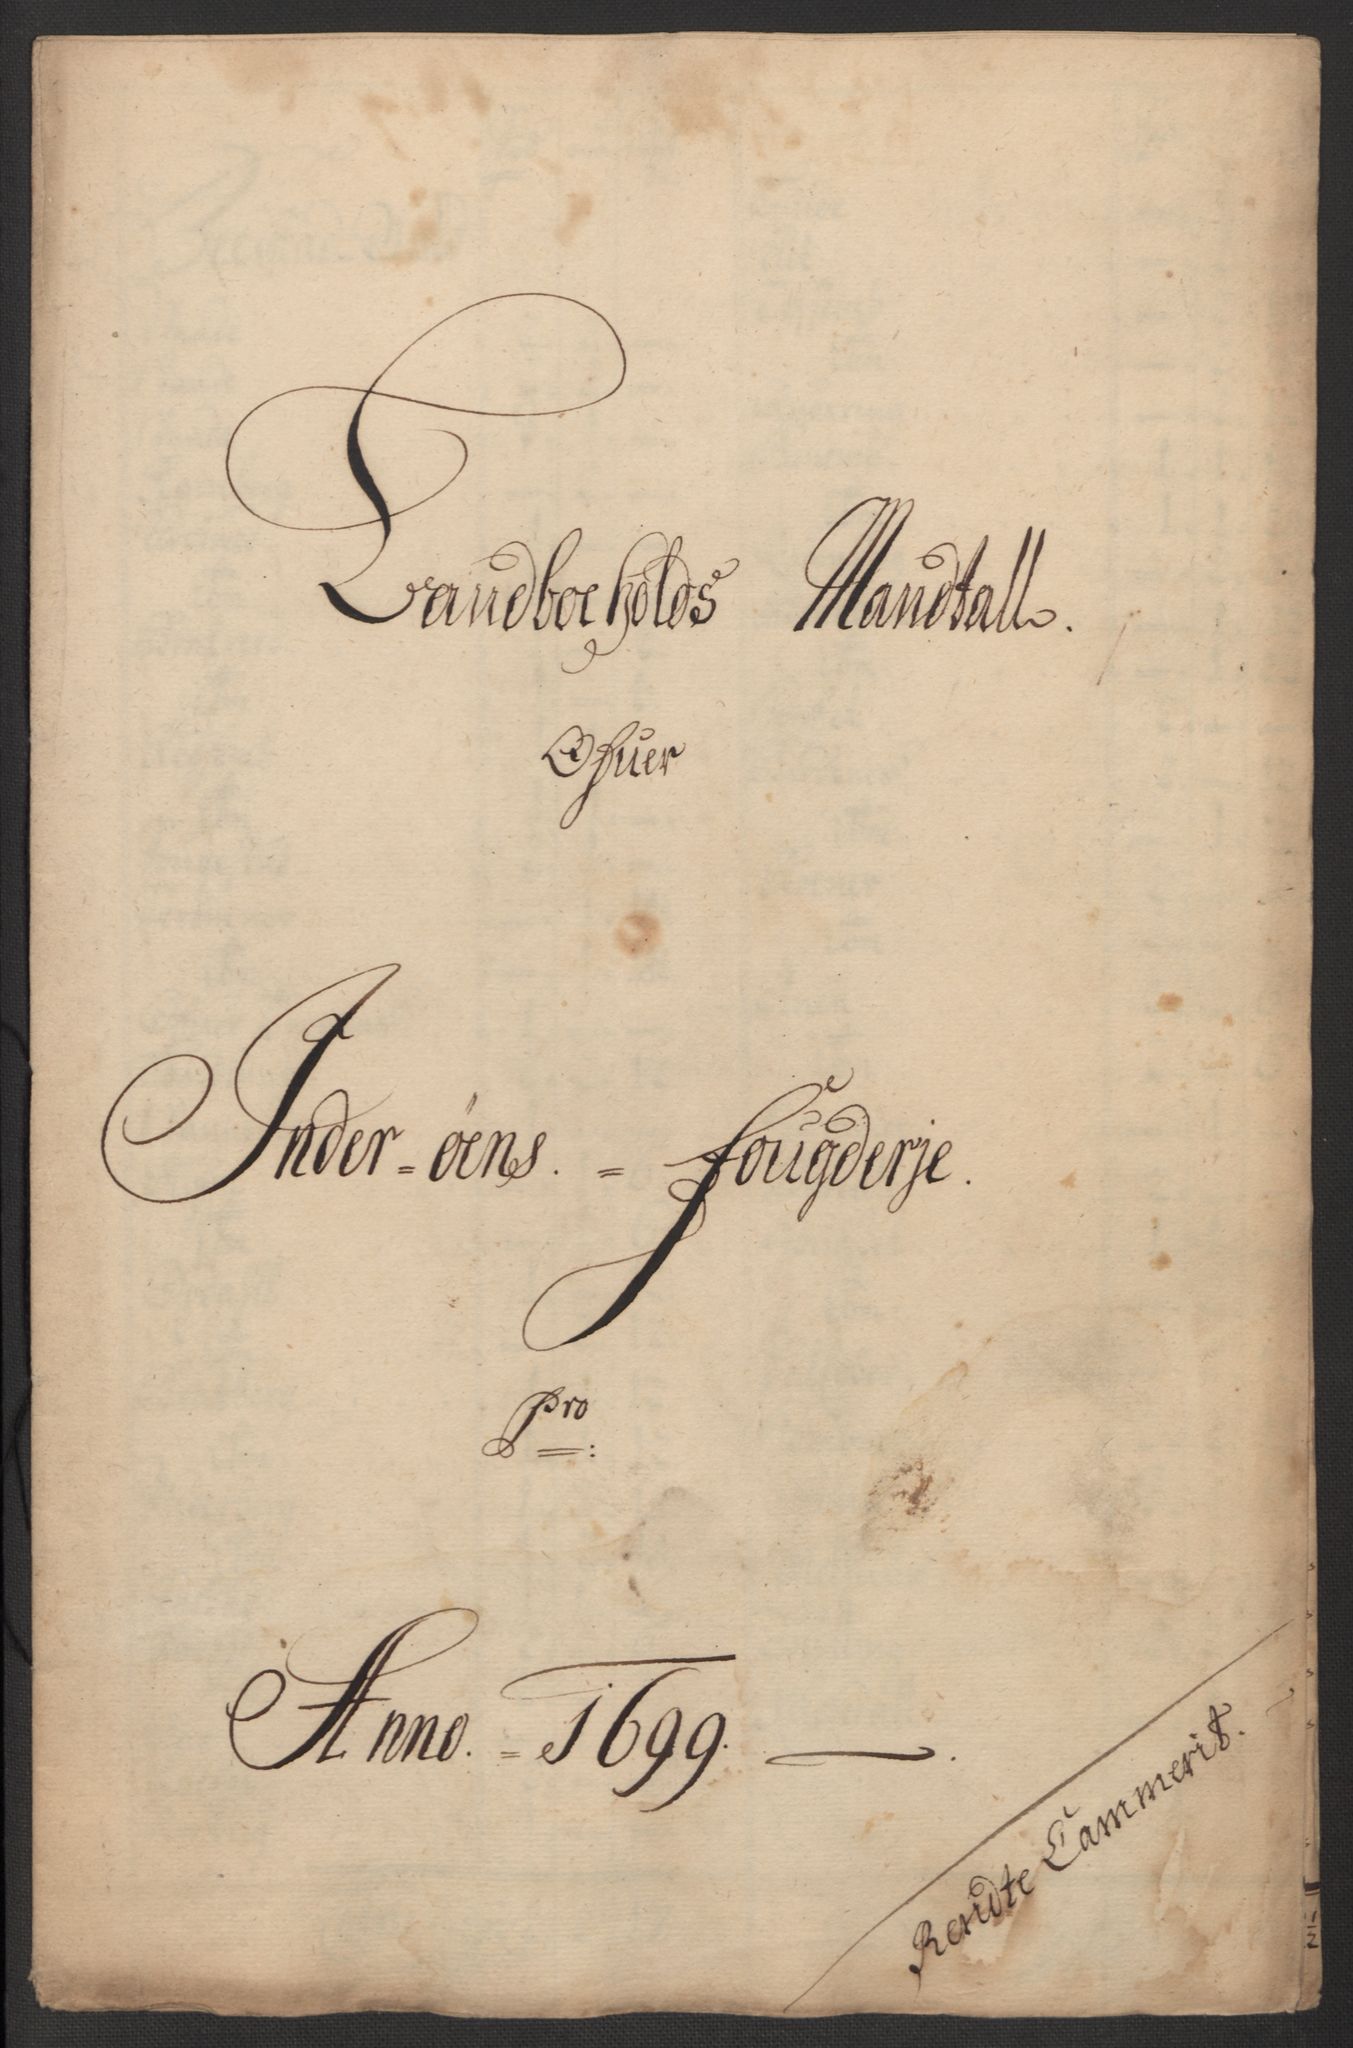 Landboeholds Mandtall.
Ofuer
Inder=öens. = fougderje.
Pro
Anno. = 1699.
Rendte Cammerit.